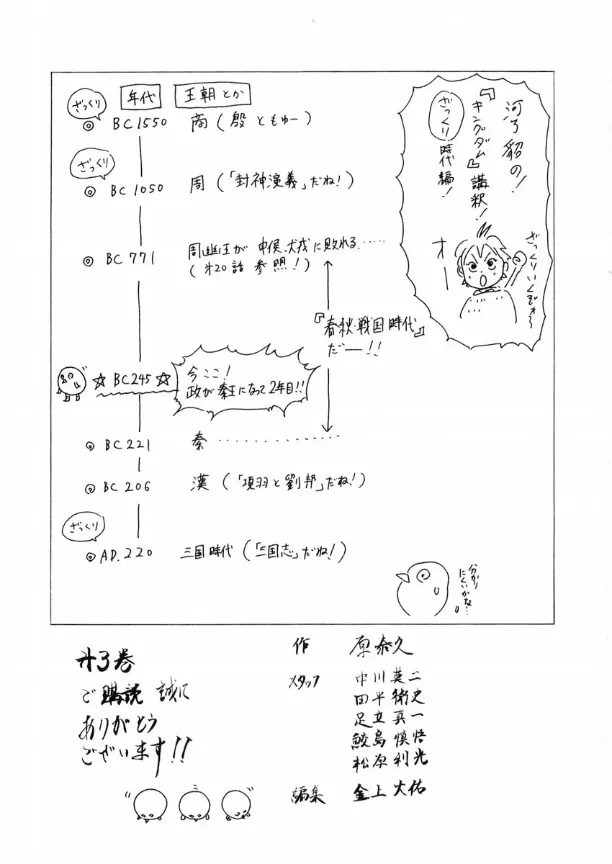 河了貂の!
『キングダム』講釈!
ざっくり時代編!
ざっくりいくぞォ〜
オー
年代 王朝とか
ざっくり
BC1550 商(殷ともゆー)
ざっくり
BC1050 周(「封神演義」だね!)
BC771 周幽王が申侯、犬戎に敗れる……
(才20話 参照!)
『春秋・戦国時代』
だー!!
☆BC245☆ 今ここ!
政が秦王になって2年目!!
BC221 秦……………
BC206 漢(「項羽と劉邦」だね!)
ざっくり
AD.220 三国時代(「三国志」だね!)
分かり
にくいかな…
才3巻
ご購読 誠に
ありがとう
ございます!!
作 原泰久
スタッフ 中川英二
田平衛史
足立真一
鮫島慎悟
松原利光
編集 金上大佑